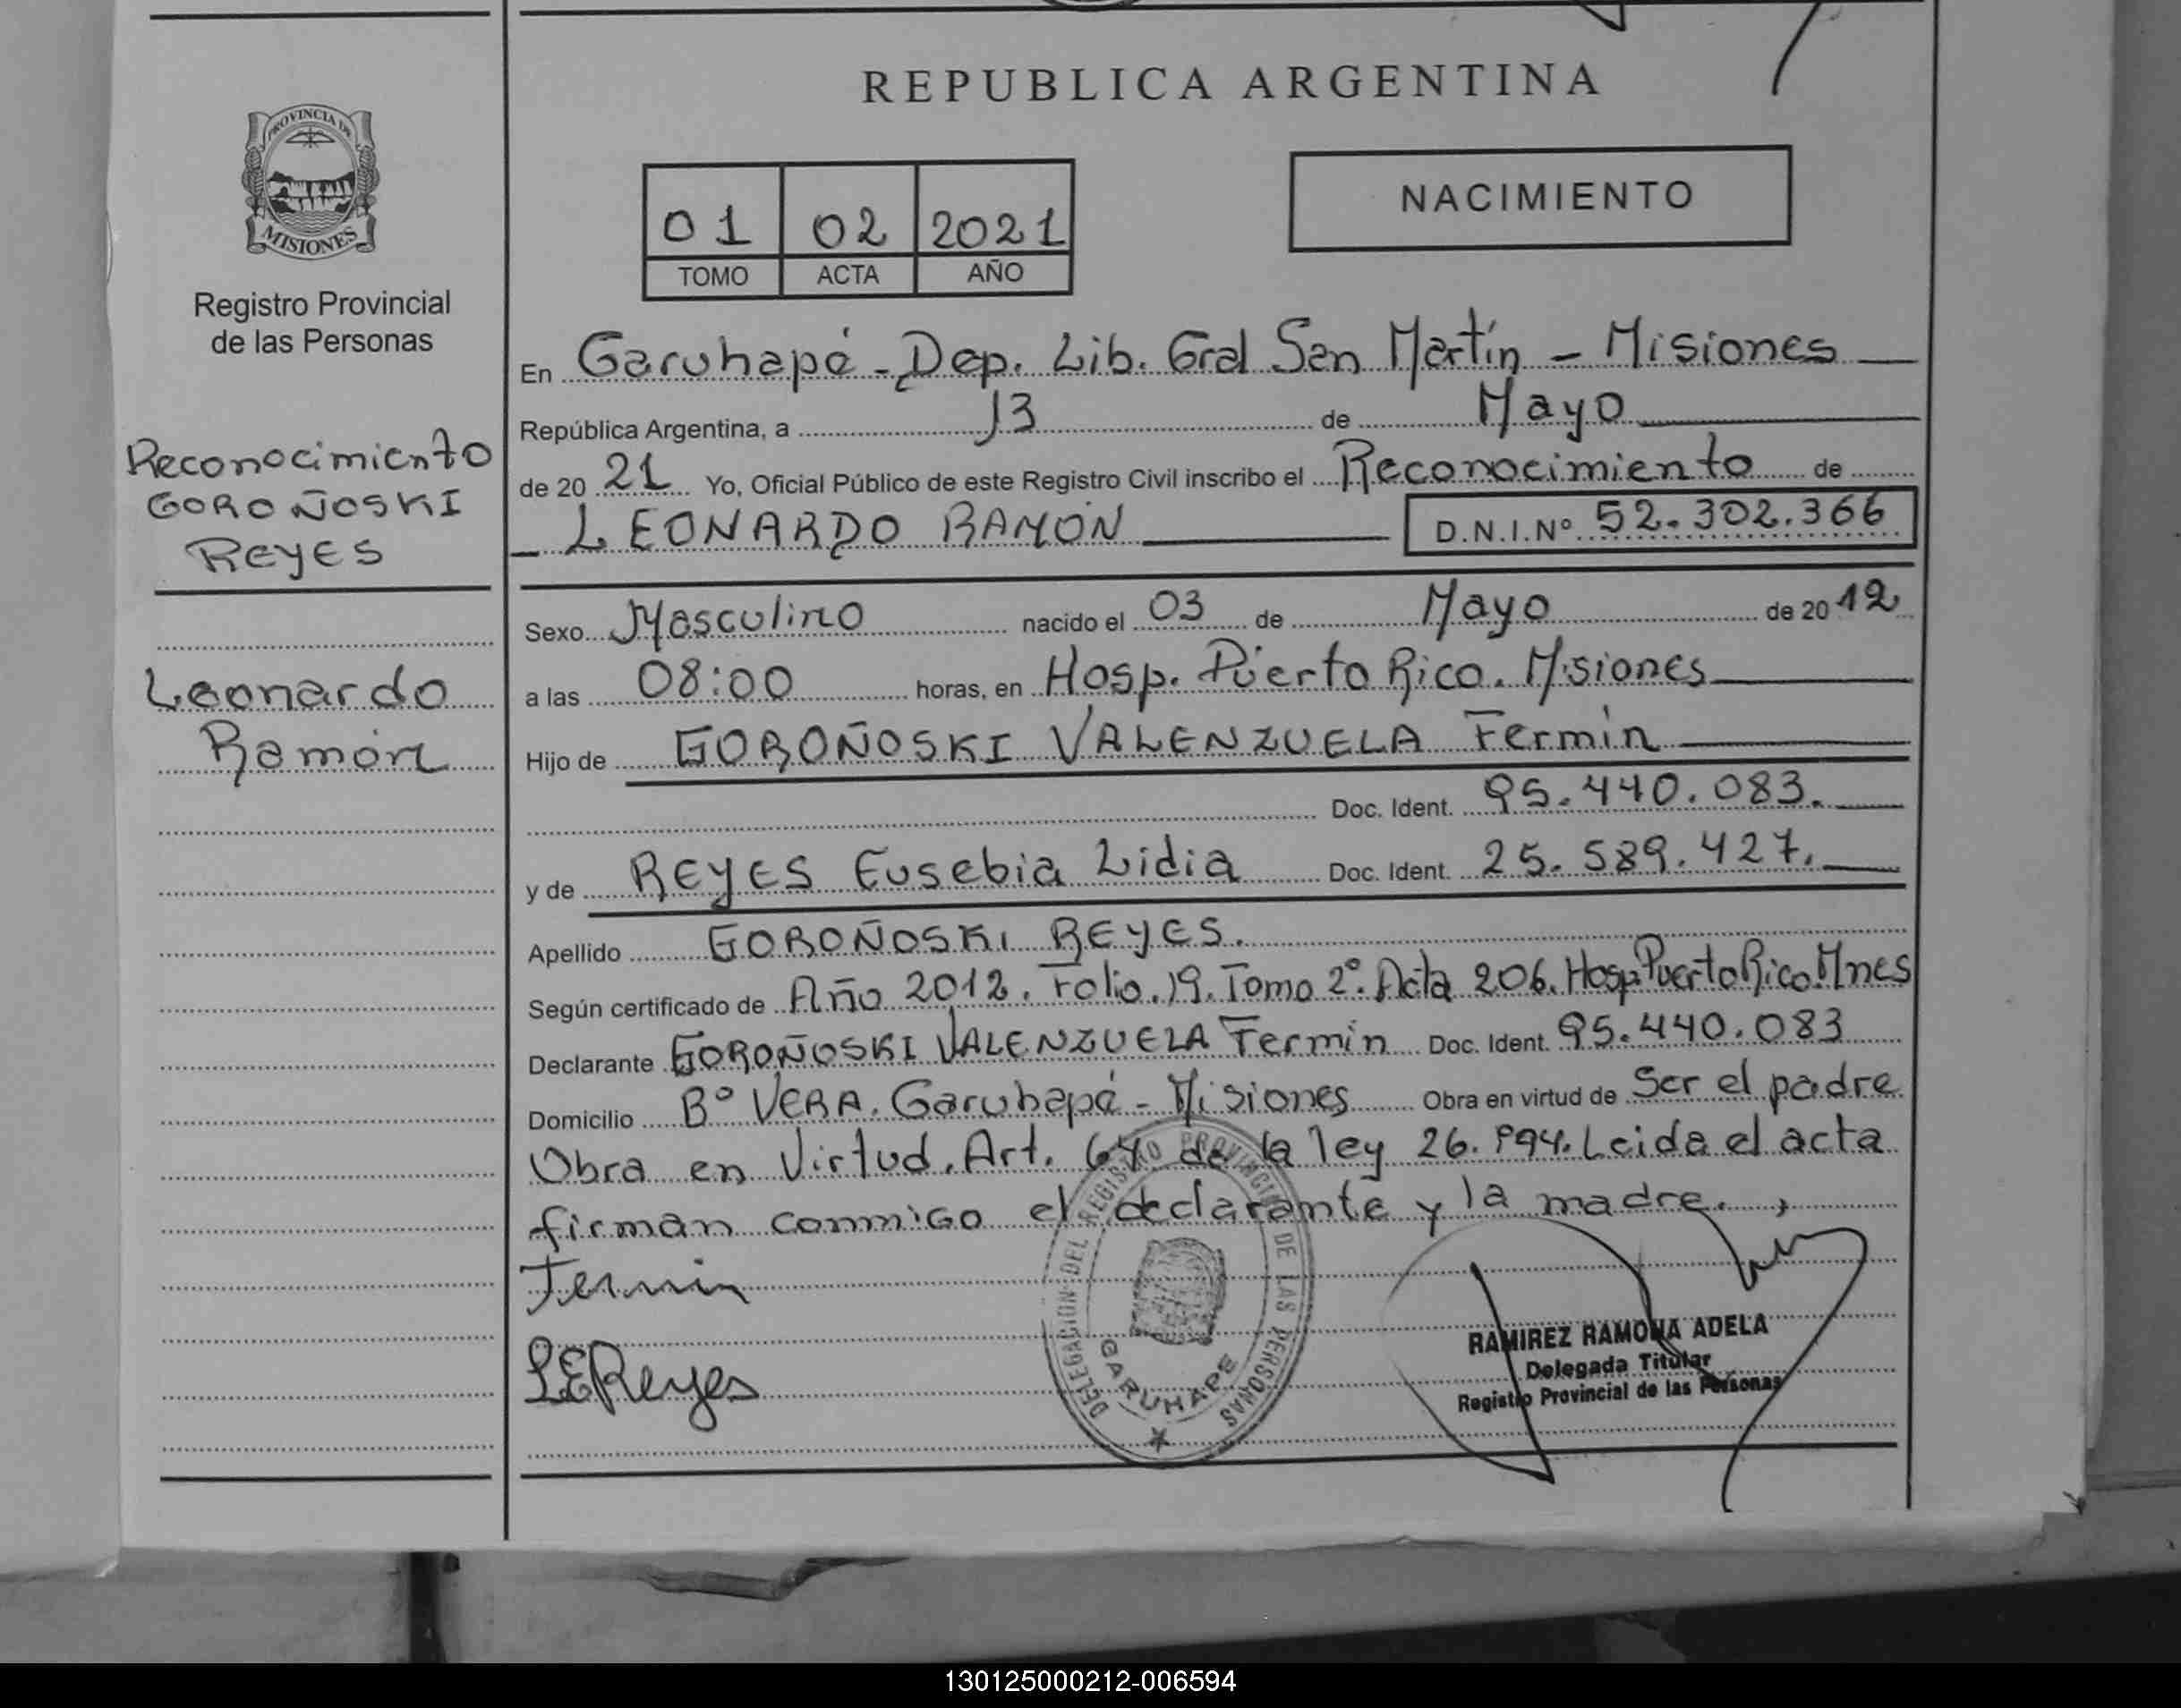 REPUBLICA ARGENTINA
PROVINCIA DE
MISIONES
Registro Provincial
de las Personas
01 02 2021
TOMO ACTA AÑO
NACIMIENTO
Reconocimiento
GOROÑOSKI
REYES
Leonardo
Ramón
En Garuhapé - Dep. Lib. Gral San Martín - Misiones
República Argentina, a 13 de Mayo
de 20 21 Yo, Oficial Público de este Registro Civil inscribo el Reconocimiento de
LEONARDO RAMÓN D.N.I.Nº 52.302.366
Sexo Masculino nacido el 03 de Mayo de 20 12
a las 08:00 horas, en Hosp. Puerto Rico. Misiones
Hijo de GOROÑOSKI VALENZUELA Fermín
Doc. Ident. 95.440.083.
y de REYES Eusebia Lidia Doc. Ident. 25.589.427.
Apellido GOROÑOSKI REYES.
Según certificado de Año 2012. Folio. 19. Tomo 2º. Acta 206. Hosp. Puerto Rico. Mnes
Declarante GOROÑOSKI VALENZUELA Fermín Doc. Ident. 95.440.083
Domicilio Bº VERA. Garuhapé - Misiones Obra en virtud de Ser el padre
Obra en Virtud. Art. 64 de la ley 26.994. Leida el acta
firman conmigo el declarante y la madre.
Fermin
LEReyes
DELEGACION DEL REGISTRO PROVINCIAL DE LAS PERSONAS
GARUHAPE
RAMIREZ RAMONA ADELA
Delegada Titular
Registro Provincial de las Personas
130125000212-006594